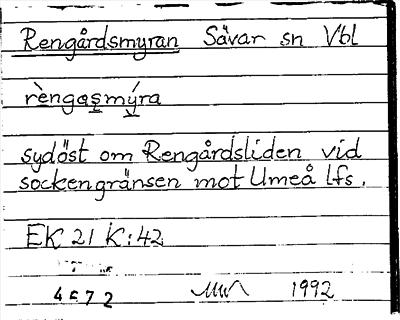 Rengårdsmyran Sävar sn Vbl
rèngas̮mý̮ra
sydöst om Rengårdsliden vid
sockengränsen mot Umeå lfs.
EK 21 K:42
4672 1992